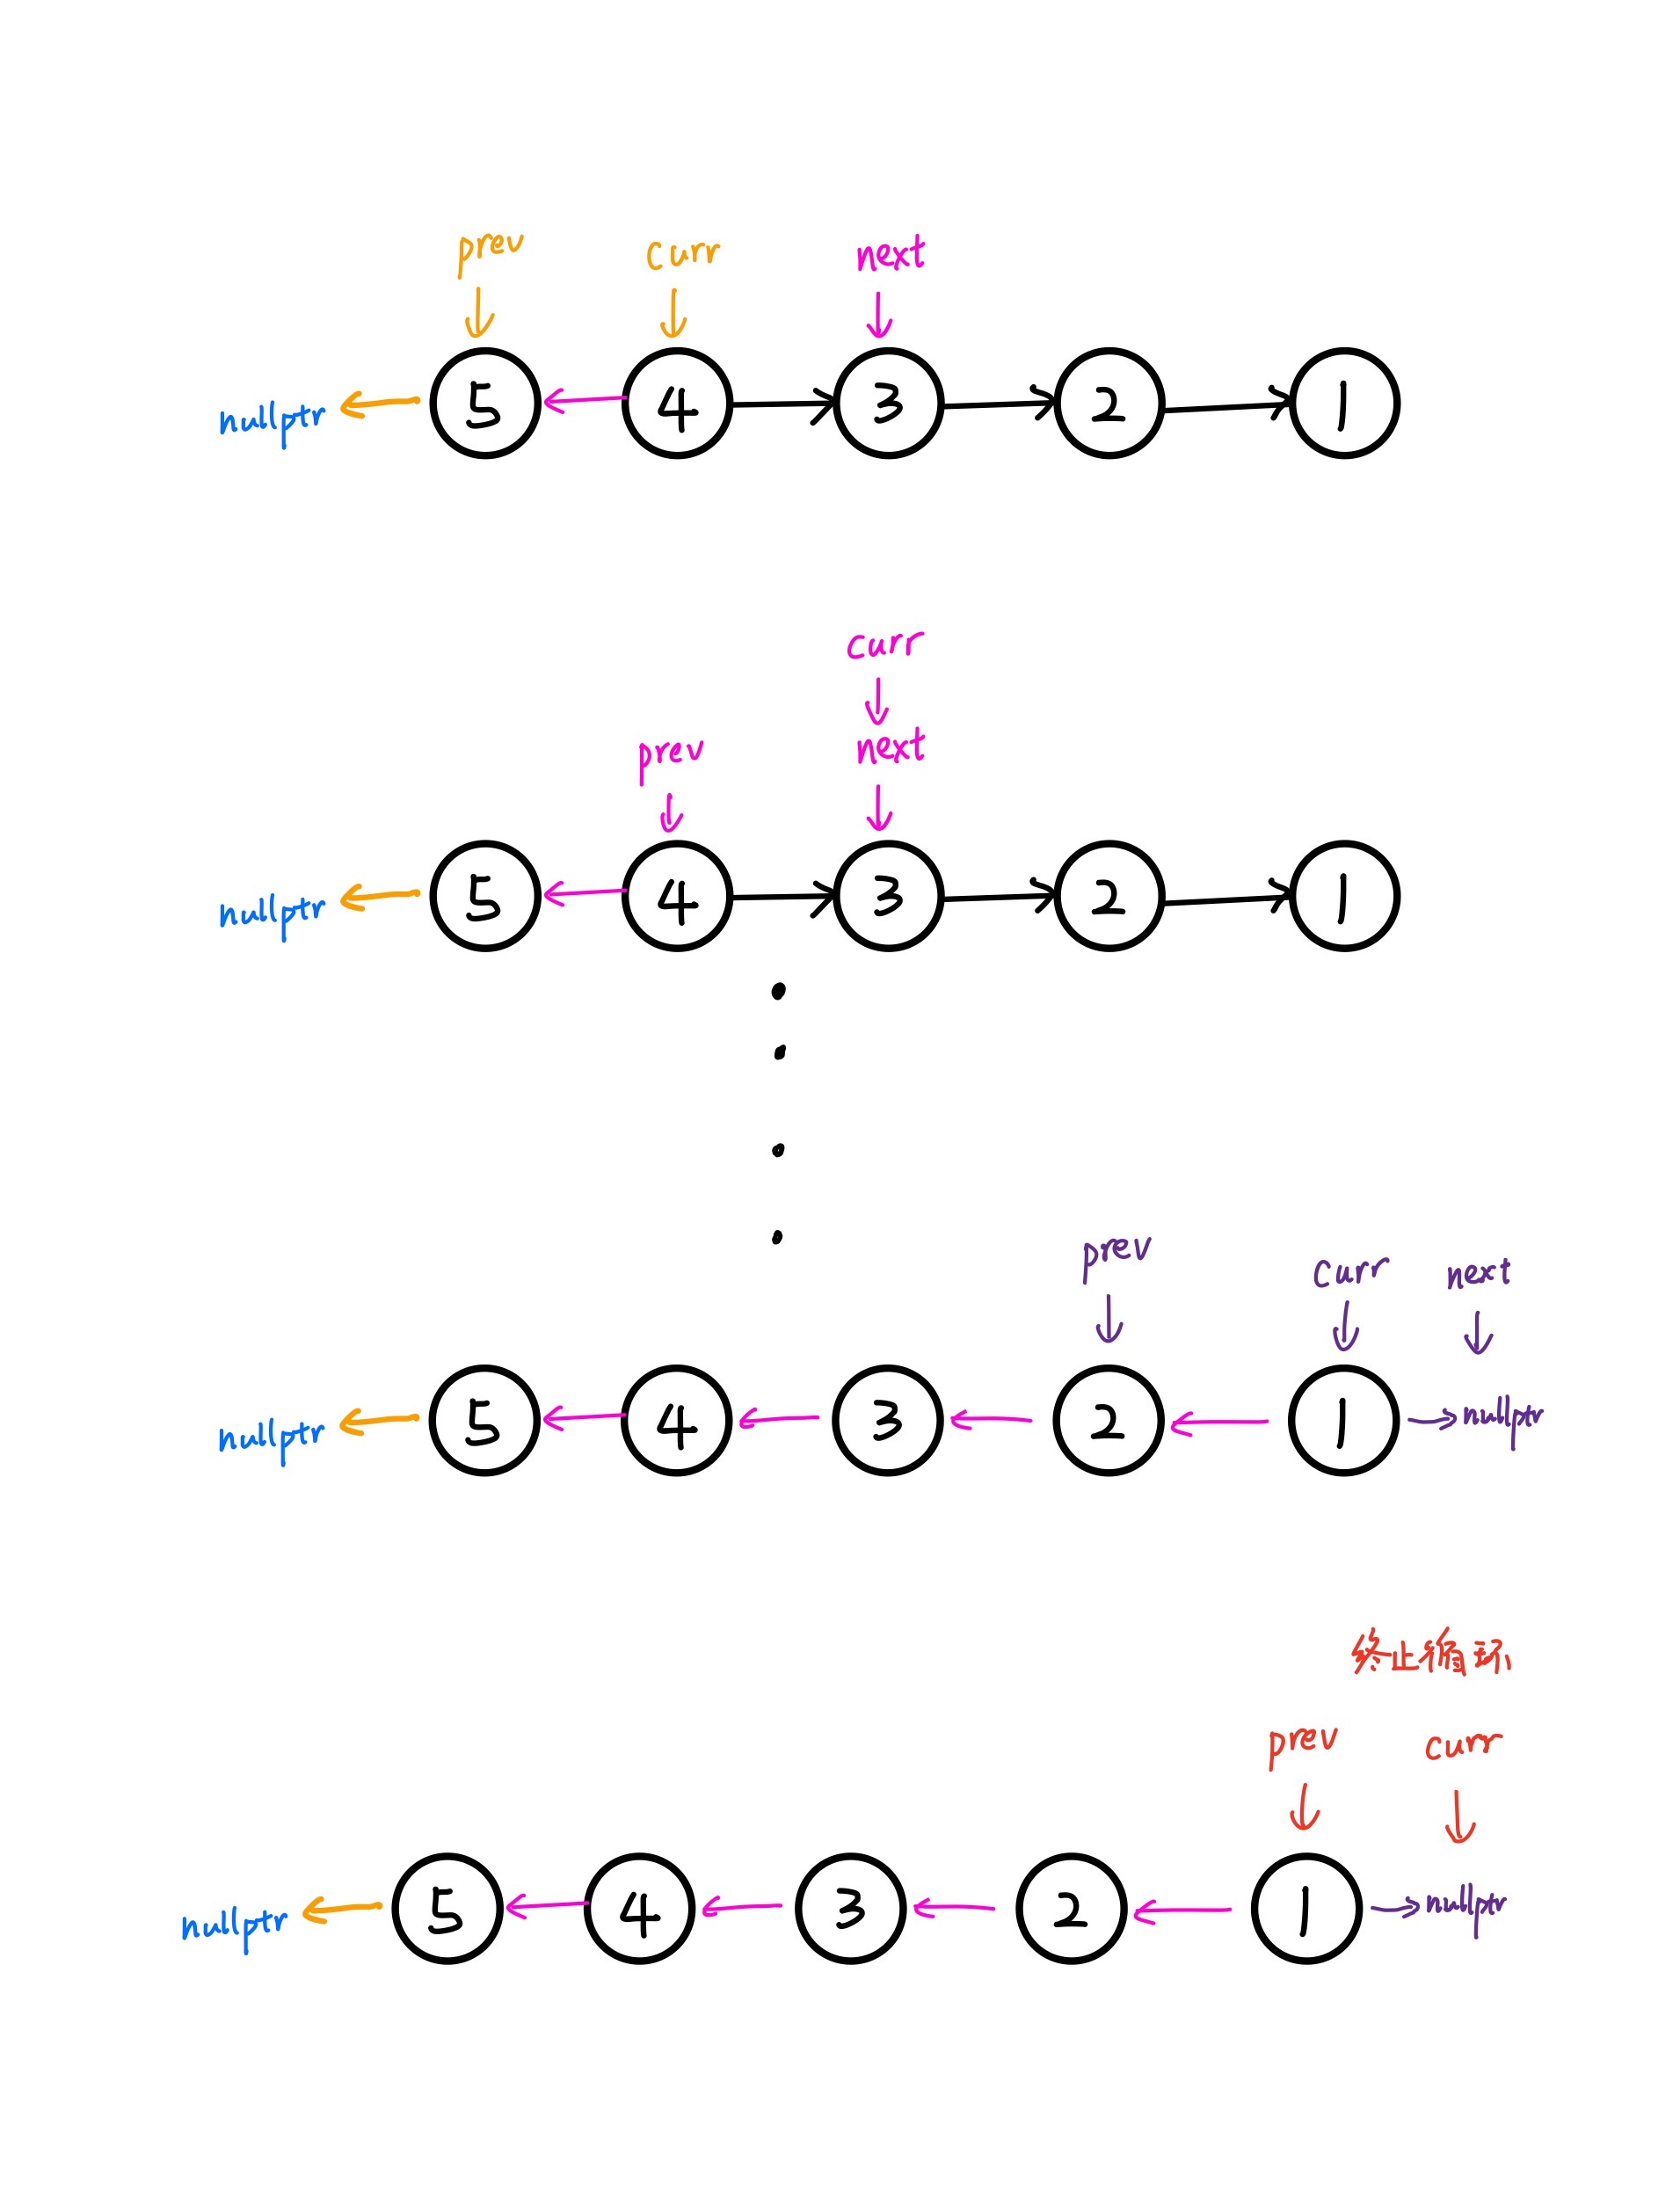 prev curr next
nullptr 5 4 3 2 1
curr
prev next
nullptr 5 4 3 2 1
prev curr next
nullptr 5 4 3 2 1 nullptr
终止循环
prev curr
nullptr 5 4 3 2 1 nullptr